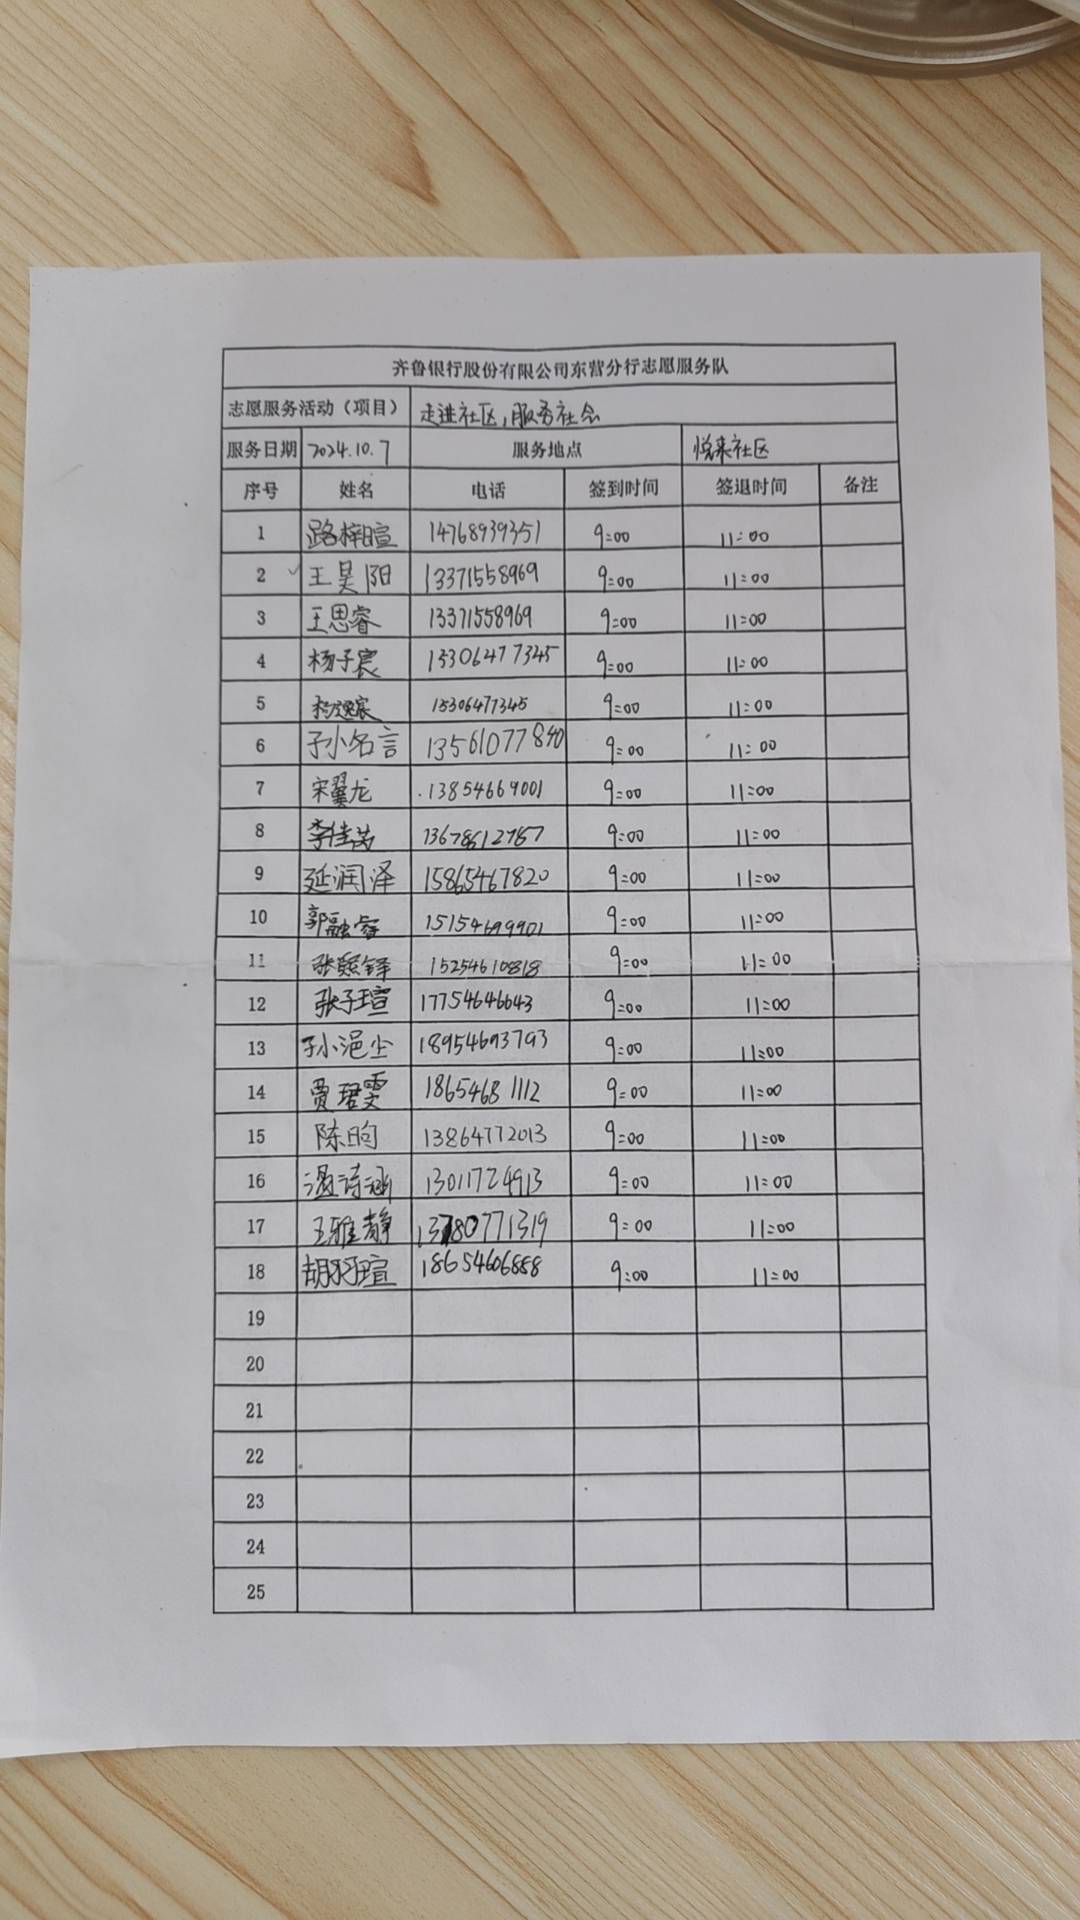 齐鲁银行股份有限公司东营分行志愿服务队
志愿服务活动（项目） 走进社区，服务社会
服务日期 2024.10.7 服务地点 悦来社区
序号 姓名 电话 签到时间 签退时间 备注
1 路梓暄 14768939351 9:00 11:00
2 王昊阳 13371558969 9:00 11:00
3 王思睿 13371558969 9:00 11:00
4 杨子宸 15306477345 9:00 11:00
5 杨逸宸 15306477345 9:00 11:00
6 孙名言 13561077840 9:00 11:00
7 宋翼龙 13854669001 9:00 11:00
8 李佳芮 9:00 11:00
9 延润泽 15865467820 9:00 11:00
10 郭融睿 15154699901 9:00 11:00
11 张熙铎 15254610818 9:00 11:00
12 张子瑄 17754646643 9:00 11:00
13 孙浥尘 18954693793 9:00 11:00
14 贾珺雯 18654681112 9:00 11:00
15 陈昫 13864772013 9:00 11:00
16 温诗涵 13011724913 9:00 11:00
17 王雅静 13780771319 9:00 11:00
18 胡珂瑄 18654606888 9:00 11:00
19
20
21
22
23
24
25